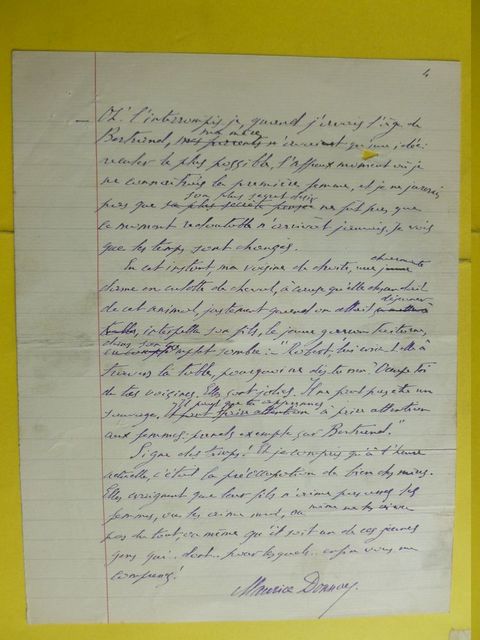 4
— Oh! l'interrompis-je, quand j'avais l'âge de
Bertrand, mes parents ma mère n'avait qu'une idée :
reculer le plus possible, l'affreux moment où je
ne connaîtrais la première femme, et je ne jurerais
pas que sa plus secrète pensée son plus secret désir ne fût pas que
ce moment redoutable n'arrivât jamais. Je vois
que les temps sont changés.
En cet instant ma voisine de droite, une charmante
dame en culotte de cheval, à cause qu'elle descendait
de cet animal, justement quand on allait déjeuner
interpelle son fils, le jeune garçon taciturne,
dans son complet sombre : "Robert, lui crie-t-elle à
travers la table, pourquoi ne dis-tu rien ? Occupe-toi
de tes voisines. Elles sont jolies. Il ne faut pas être un
sauvage, il faut que tu apprennes à faire attention
aux femmes, prends exemple sur Bertrand."
Signe des temps ! Et je compris qu'à l'heure
actuelle, c'était la préoccupation de bien des mères.
Elles craignent que leur fils n'aime pas assez les
femmes, ou les aime mal, ou même ne les aime
pas du tout, ou même qu'il soit un de ces jeunes
gens qui.. dont.. pour lesquels.. enfin vous me
comprenez !
Maurice Donnay.